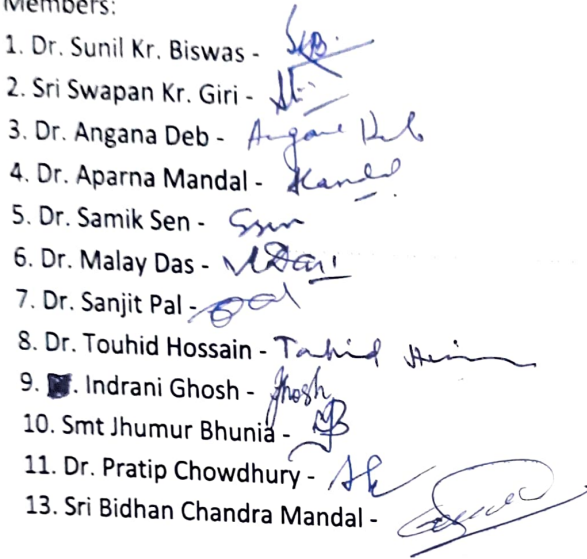 Members:
1. Dr. Sunil Kr. Biswas - SKB
2. Sri Swapan Kr. Giri -
3. Dr. Angana Deb - Angana Deb
4. Dr. Aparna Mandal - AMandal
5. Dr. Samik Sen - SSen
6. Dr. Malay Das - MDas
7. Dr. Sanjit Pal - Pal
8. Dr. Touhid Hossain - Touhid
9. . Indrani Ghosh - Ghosh
10. Smt Jhumur Bhunia - JB
11. Dr. Pratip Chowdhury -
13. Sri Bidhan Chandra Mandal -